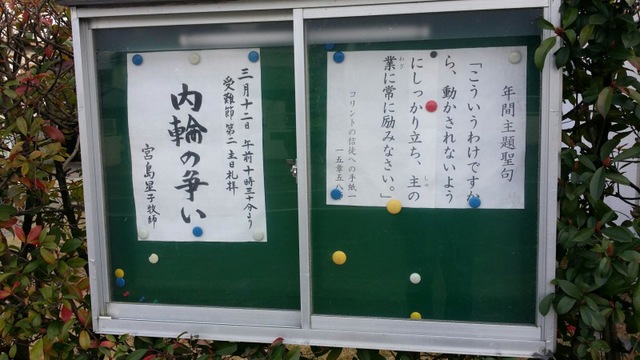 年間主題聖句
「こういうわけですか
ら、動かされないよう
にしっかり立ち、主の
業に常に励みなさい。」
コリントの信徒への手紙一
一五章五八
三月十二日 午前十時三十分より
受難節第二主日礼拝
内輪の争い
宮島星子牧師